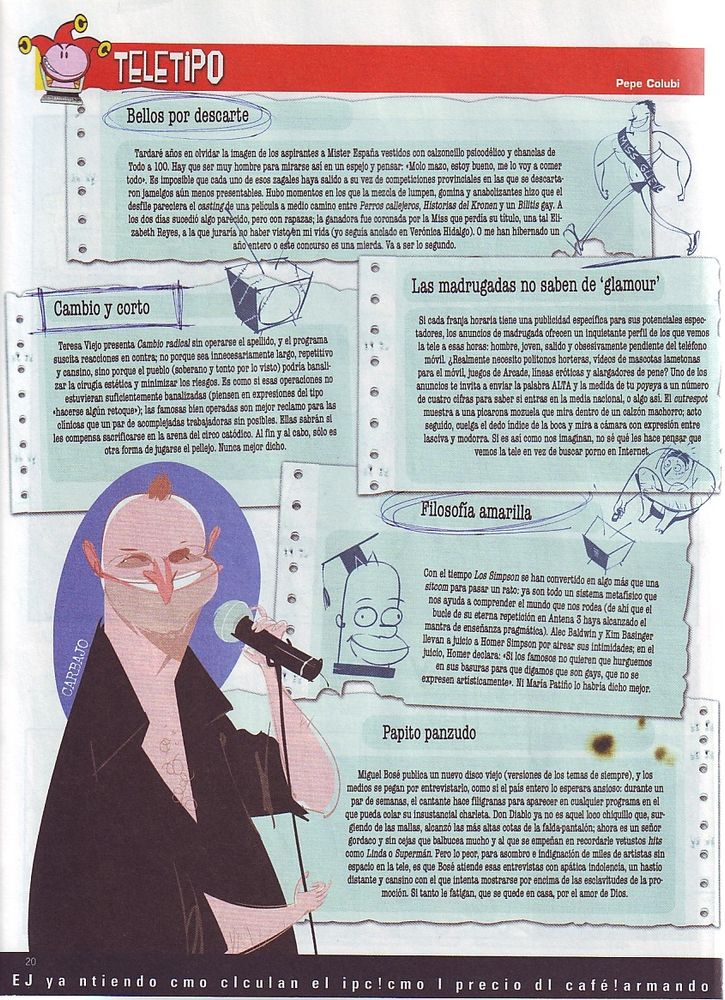 TELETIPO
Pepe Colubi
Bellos por descarte
Tardaré años en olvidar la imagen de los aspirantes a Mister España vestidos con calzoncillo psicodélico y chanclas de
Todo a 100. Hay que ser muy hombre para mirarse así en un espejo y pensar: «Molo mazo, estoy bueno, me lo voy a comer
todo». Es imposible que cada uno de esos zagales haya salido a su vez de competiciones provinciales en las que se descarta-
ron jamelgos aún menos presentables. Hubo momentos en los que la mezcla de lumpen, gomina y anabolizantes hizo que el
desfile pareciera el casting de una película a medio camino entre Perros callejeros, Historias del Kronen y un Bilitis gay. A
los dos días sucedió algo parecido, pero con rapazas; la ganadora fue coronada por la Miss que perdía su título, una tal Eli-
zabeth Reyes, a la que juraría no haber visto en mi vida (yo seguía anclado en Verónica Hidalgo). O me han hibernado un
año entero o este concurso es una mierda. Va a ser lo segundo.
Cambio y corto
Teresa Viejo presenta Cambio radical sin operarse el apellido, y el programa
suscita reacciones en contra; no porque sea innecesariamente largo, repetitivo
y cansino, sino porque el pueblo (soberano y tonto por lo visto) podría banali-
zar la cirugía estética y minimizar los riesgos. Es como si esas operaciones no
estuvieran suficientemente banalizadas (piensen en expresiones del tipo
«hacerse algún retoque»); las famosas bien operadas son mejor reclamo para las
clínicas que un par de acomplejadas trabajadoras sin posibles. Ellas sabrán si
les compensa sacrificarse en la arena del circo catódico. Al fin y al cabo, sólo es
otra forma de jugarse el pellejo. Nunca mejor dicho.
Las madrugadas no saben de ‘glamour’
Si cada franja horaria tiene una publicidad específica para sus potenciales espec-
tadores, los anuncios de madrugada ofrecen un inquietante perfil de los que vemos
la tele a esas horas: hombre, joven, salido y obsesivamente pendiente del teléfono
móvil. ¿Realmente necesito politonos horteras, videos de mascotas lametonas
para el móvil, juegos de Arcade, líneas eróticas y alargadores de pene? Uno de los
anuncios te invita a enviar la palabra ALTA y la medida de tu popeye a un número
de cuatro cifras para saber si entras en la media nacional, o algo así. El cutrespot
muestra a una picarona mozuela que mira dentro de un calzón machorro; acto
seguido, cuelga del dedo índice de la boca y mira a cámara con expresión entre
lasciva y modorra. Si es así como nos imaginan, no sé qué les hace pensar que
vemos la tele en vez de buscar porno en Internet.
Filosofía amarilla
Con el tiempo Los Simpson se han convertido en algo más que una
sitcom para pasar un rato; ya son todo un sistema metafísico que
nos ayuda a comprender el mundo que nos rodea (de ahí que el
bucle de su eterna repetición en Antena 3 haya alcanzado el
mantra de enseñanza pragmática). Alec Baldwin y Kim Basinger
llevan a juicio a Homer Simpson por airear sus intimidades; en el
juicio, Homer declara: «Si los famosos no quieren que hurguemos
en sus basuras para que digamos que son gays, que no se
expresen artísticamente». Ni María Patiño lo habría dicho mejor.
CARBAJO
Papito panzudo
Miguel Bosé publica un nuevo disco viejo (versiones de los temas de siempre), y los
medios se pegan por entrevistarlo, como si el país entero lo esperara ansioso: durante un
par de semanas, el cantante hace filigranas para aparecer en cualquier programa en el
que pueda colar su insustancial charleta. Don Diablo ya no es aquel loco chiquillo que, sur-
giendo de las mallas, alcanzó las más altas cotas de la falda-pantalón; ahora es un señor
gordaco y sin cejas que balbucea mucho y al que se empeñan en recordarle vetustos hits
como Linda o Supermán. Pero lo peor, para asombro e indignación de miles de artistas sin
espacio en la tele, es que Bosé atiende esas entrevistas con apática indolencia, un hastío
distante y cansino con el que intenta mostrarse por encima de las esclavitudes de la pro-
moción. Si tanto le fatigan, que se quede en casa, por el amor de Dios.
20
EJ ya ntiendo cmo clculan el ipc!cmo l precio dl café!armando